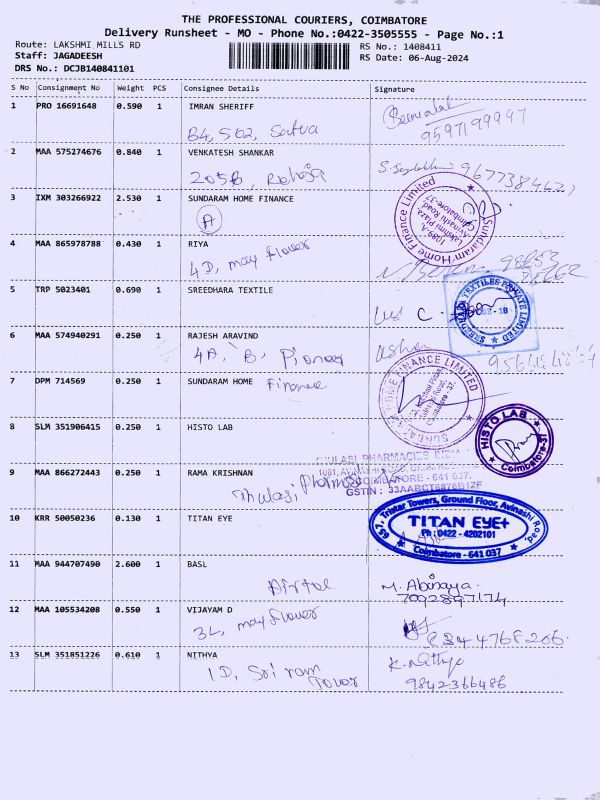 THE PROFESSIONAL COURIERS, COIMBATORE
Delivery Runsheet - MO - Phone No.:0422-3505555 - Page No.:1
Route: LAKSHMI MILLS RD RS No.: 1408411
Staff: JAGADEESH RS Date: 06-Aug-2024
DRS No.: DCJB140841101
S No Consignment No Weight PCS Consignee Details Signature
1 PRO 16691648 0.590 1 IMRAN SHERIFF
B4, 502, Satva 9597199997
2 MAA 575274676 0.840 1 VENKATESH SHANKAR
205B, Raheja
3 IXM 303266922 2.530 1 SUNDARAM HOME FINANCE
A
Sundaram Home Finance Limited
1089-A,
Lakshmi Plaza,
Avinashi Road,
Coimbatore-37.
4 MAA 865978788 0.430 1 RIYA
4D, may flower
5 TRP 5023401 0.690 1 SREEDHARA TEXTILE
TEXTILES PRIVATE LIMITED
6 MAA 574940291 0.250 1 RAJESH ARAVIND
4A, B, Pioneer
Usha
7 DPM 714569 0.250 1 SUNDARAM HOME Finance
HOME FINANCE LIMITED
8 SLM 351906415 0.250 1 HISTO LAB
HISTO LAB
Coimbatore-37
9 MAA 866272443 0.250 1 RAMA KRISHNAN
Thulasi Pharmacies
THULASI PHARMACIES INDIA
COIMBATORE - 641 037.
GSTIN : 33AABCT6876B1ZF
10 KRR 50050236 0.130 1 TITAN EYE
657, Tristar Towers, Ground Floor, Avinashi Road,
TITAN EYE+
Ph : 0422 - 4202101
Coimbatore - 641 037
11 MAA 944707490 2.600 1 BASL
Airtel M. Abinaya
7092897174
12 MAA 105534208 0.550 1 VIJAYAM D
3L, may flower
13 SLM 351851226 0.610 1 NITHYA K. Nithya
1D, Sri ram 9842366486
Tower